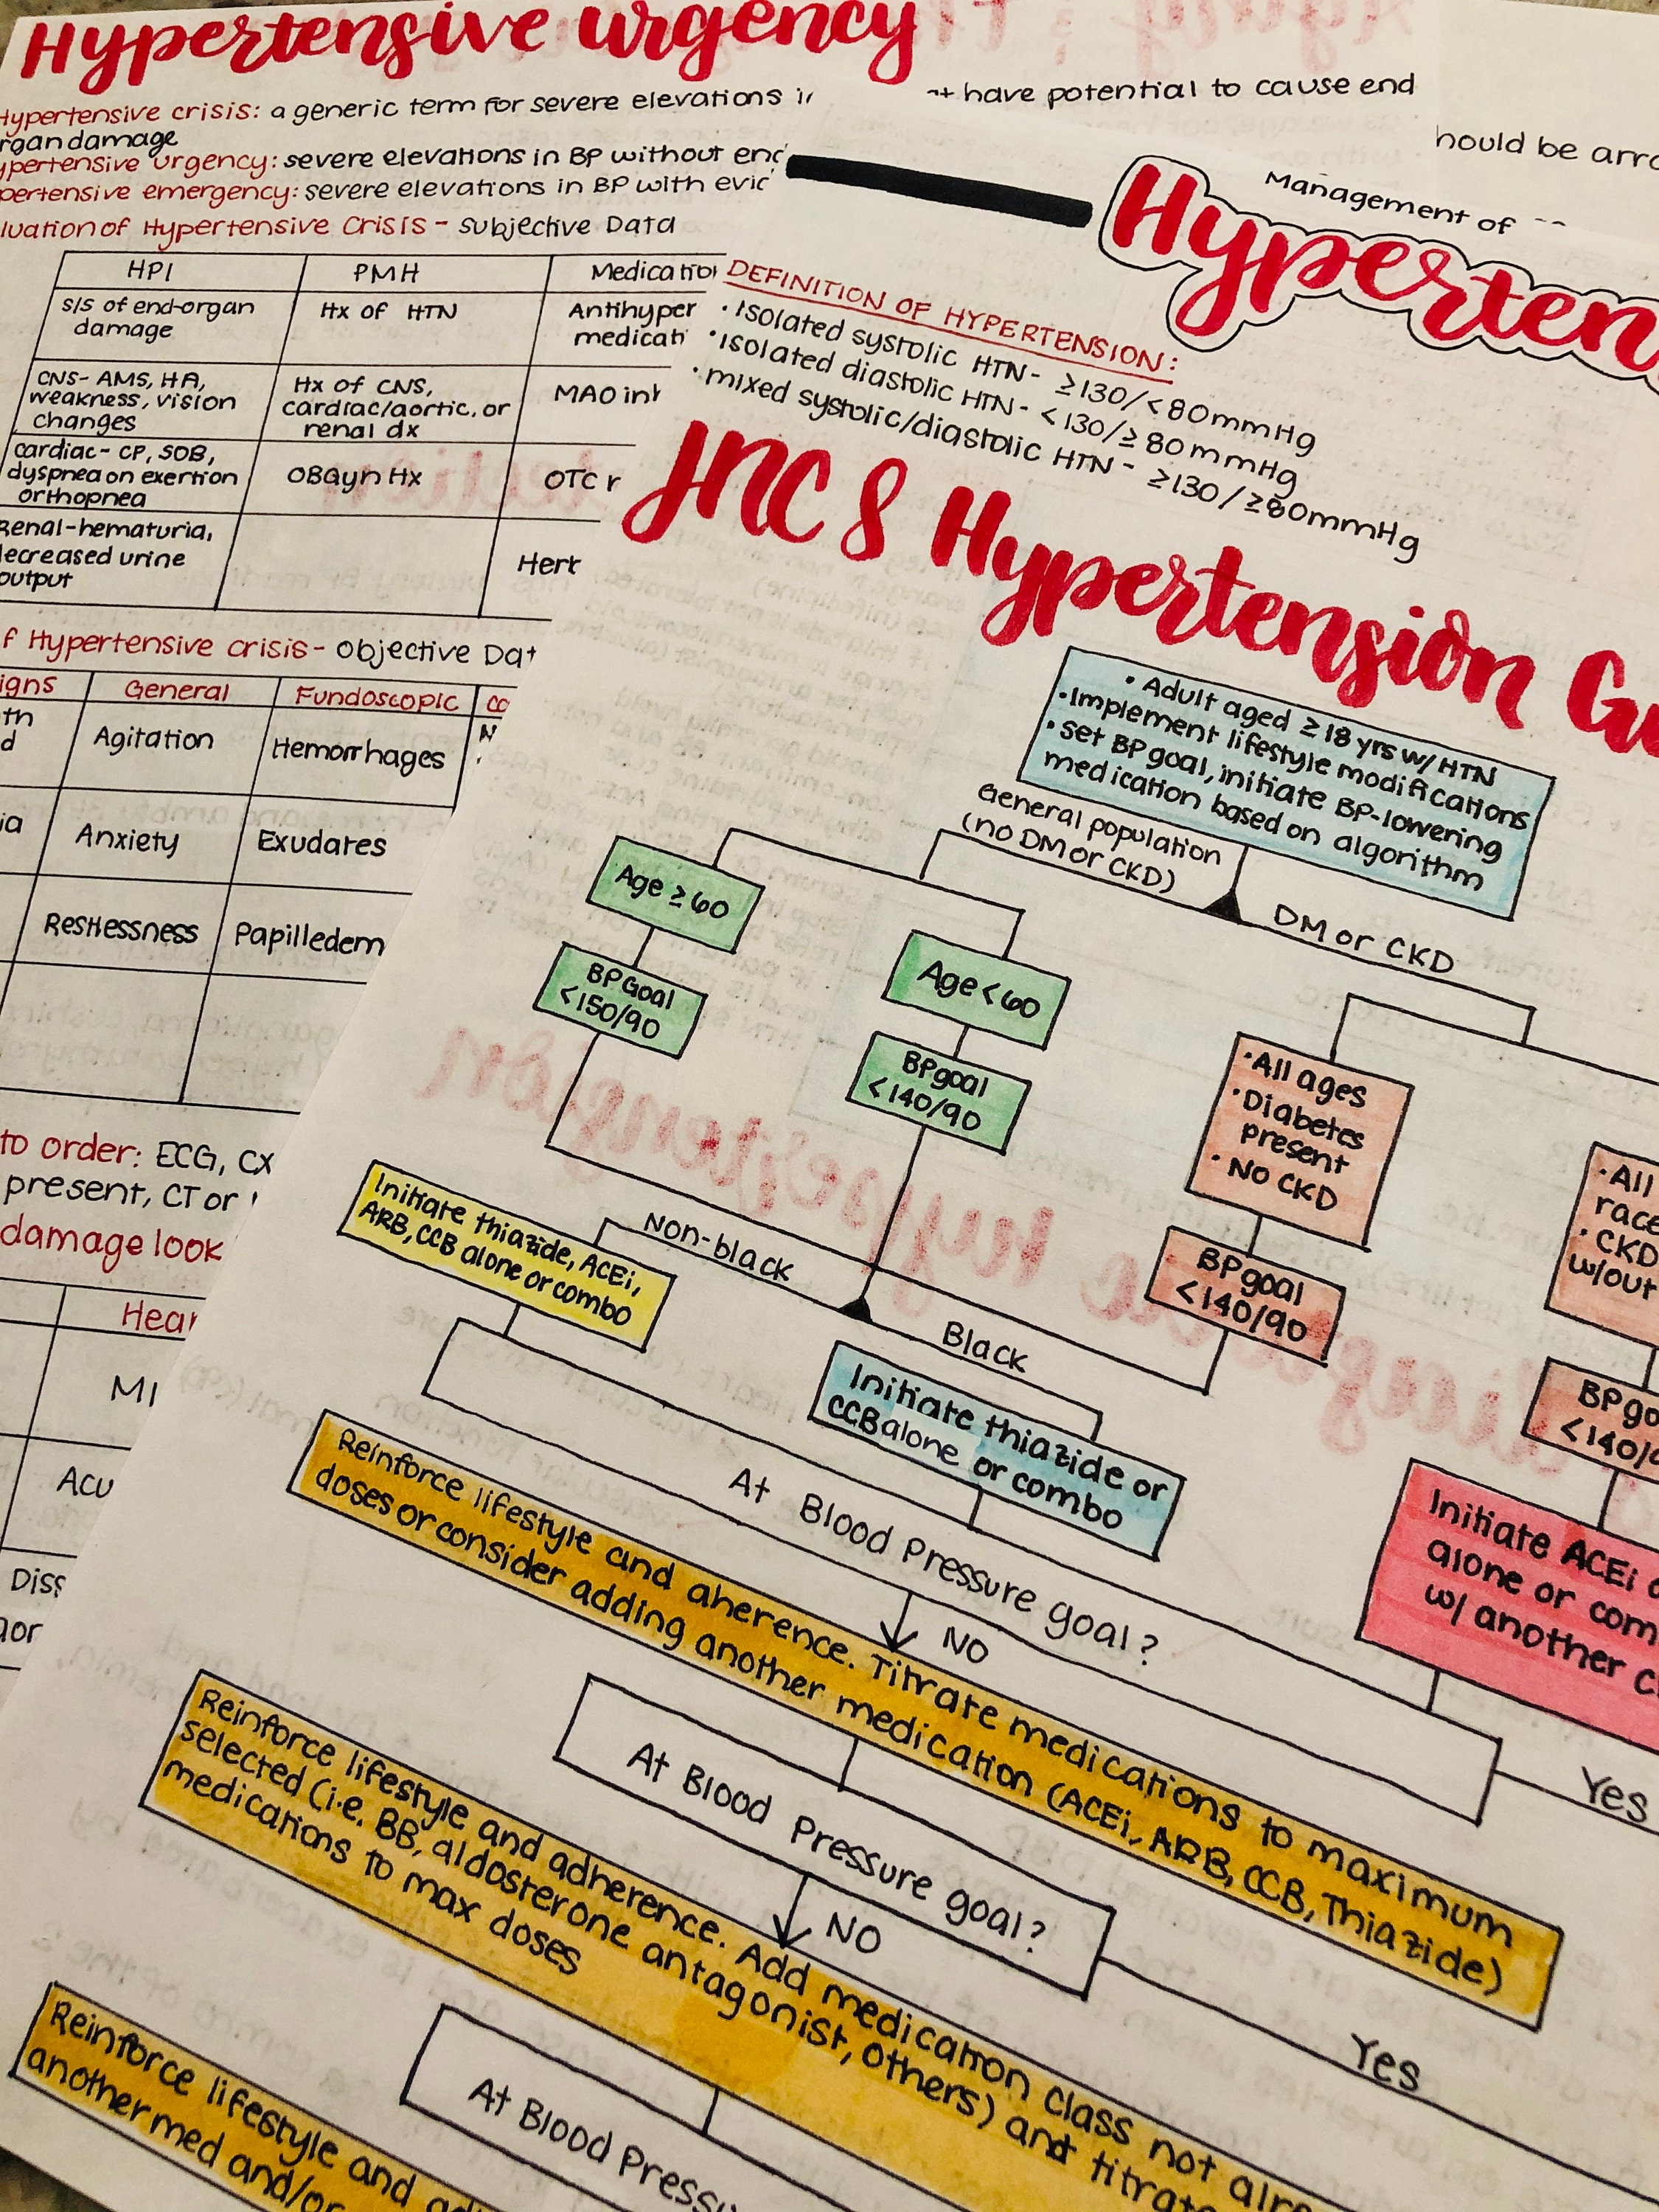 Hypertensive urgency
Hypertensive crisis: a generic term for severe elevations
organ damage
hypertensive urgency: severe elevations in BP without end
hypertensive emergency: severe elevations in BP with
Evaluation of Hypertensive Crisis - Subjective Data
HPI PMH
s/s of end-organ
damage
Hx of HTN
Antihyper
medicati
CNS- AMS, HA,
weakness, vision
changes
Hx of CNS,
cardiac/aortic, or
renal dx
MAO
cardiac- CP, SOB,
dyspnea on exertion
orthopnea
OBGyn Hx
OTC
Renal-hematuria,
decreased urine
output
Her
f Hypertensive crisis- Objective Dat
igns General Fundoscopic co
th
d
Agitation
Hemorrhages
ia
Anxiety
Exudates
Restlessness
Papilledem
to order: ECG, CX
present, CT or
damage look
Hear
MI
Acu
Diss
aor
have potential to cause end
hould be arra
Management of
Hyperten
DEFINITION OF HYPERTENSION:
• Isolated systolic HTN- ≥130/<80mmHg
• isolated diastolic HTN- <130/≥80mmHg
• mixed systolic/diastolic HTN- ≥130/≥80mmHg
JNC 8 Hypertension Gu
• Adult aged ≥18 yrs w/ HTN
• Implement lifestyle modifications
• Set BP goal, initiate BP-lowering
medication based on algorithm
General population
(no DM or CKD)
DM or CKD
Age ≥60
BP Goal
<150/90
Age <60
BP goal
<140/90
• All ages
• Diabetes
present
• No CKD
BP goal
<140/90
• All
race
• CKD
w/out
BP go
<140/9
Non-black
Black
Initiate thiazide, ACEi,
ARB, CCB alone or combo
Initiate thiazide or
CCB alone or combo
Initiate ACEi
alone or com
w/ another
At Blood Pressure goal?
NO
Yes
Reinforce lifestyle and aherence. Titrate medications to maximum
doses or consider adding another medication (ACEi, ARB, CCB, Thiazide)
At Blood Pressure goal?
NO
Yes
Reinforce lifestyle and adherence. Add medication class not alre
selected (i.e. BB, aldosterone antagonist, others) and titrate
medications to max doses
At Blood Pressu
Reinforce lifestyle and ad
another med and/or